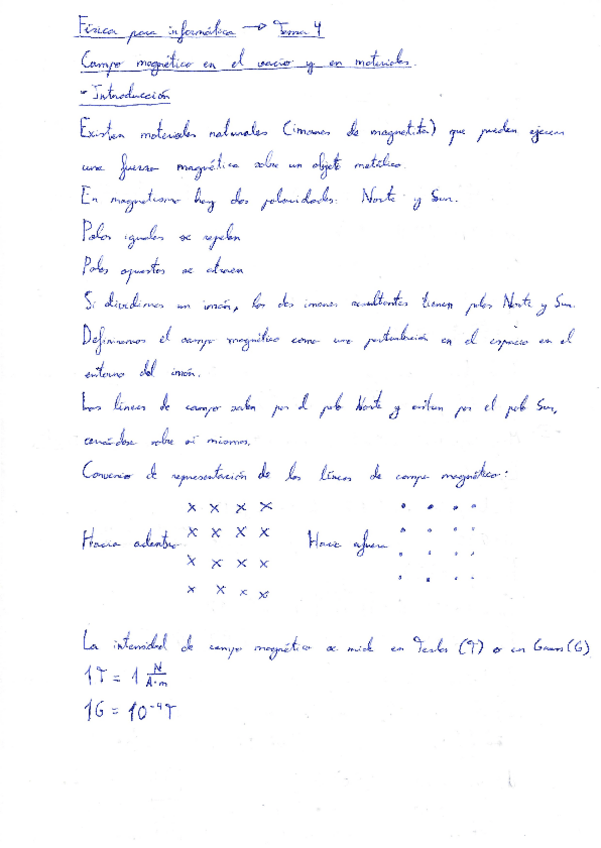 Física para informática → Tema 4
Campo magnético en el vacío y en materiales.
- Introducción
Existen materiales naturales (imanes de magnetita) que pueden ejercer
una fuerza magnética sobre un objeto metálico.
En magnetismo hay dos polaridades: Norte y Sur.
Polos iguales se repelen
Polos opuestos se atraen
Si dividimos un imán, los dos imanes resultantes tienen polos Norte y Sur.
Definiremos el campo magnético como una perturbación en el espacio en el
entorno del imán.
Las líneas de campo salen por el polo Norte y entran por el polo Sur,
cerrándose sobre sí mismas.
Convenio de representación de las líneas de campo magnético:
x x x x
x x x x
Hacia adentro Hacia afuera
x x x x
x x x x
La intensidad de campo magnético se mide en Teslas (T) o en Gauss (G)
1T = 1 N/A·m
1G = 10⁻⁴T